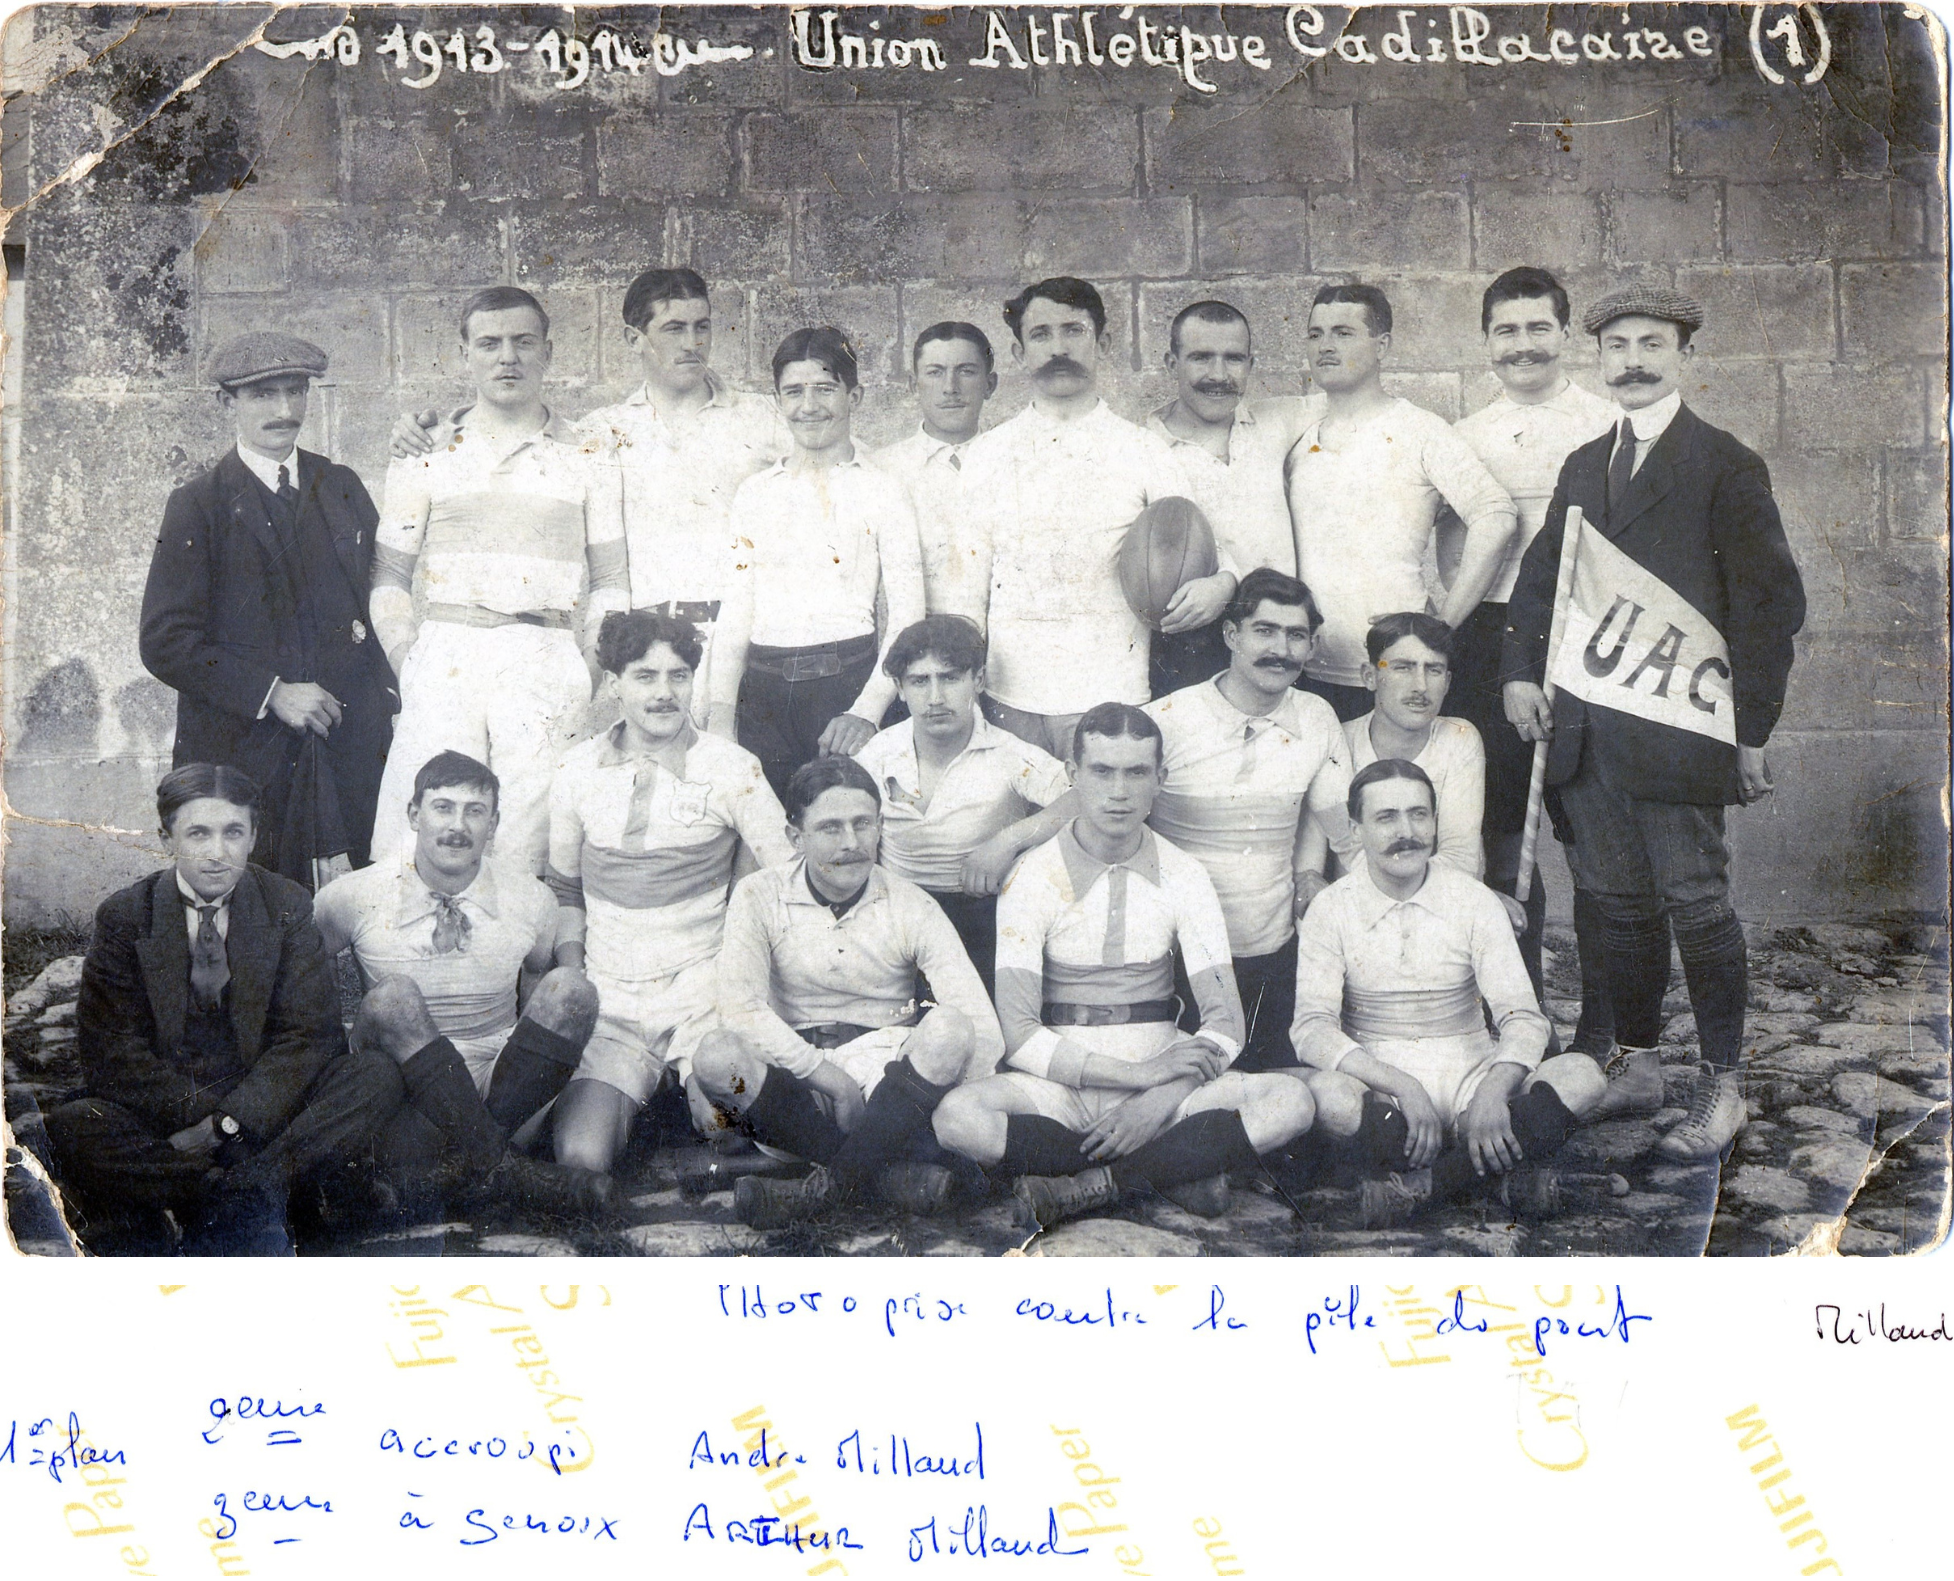 1913-1914 Union Athlétique Cadillacaise (1)
UAC
Photo prise contre la pile du pont
Millaud
1er plan 2eme accroupi André Millaud
3eme à genoux ARTHUR Millaud
Fujic
Crystal A
FUJIFILM
Crystal
ve Paper
me
JIFILM